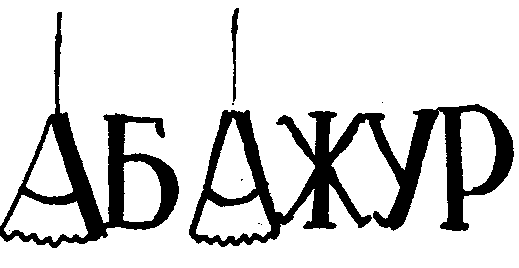 АБАЖУР